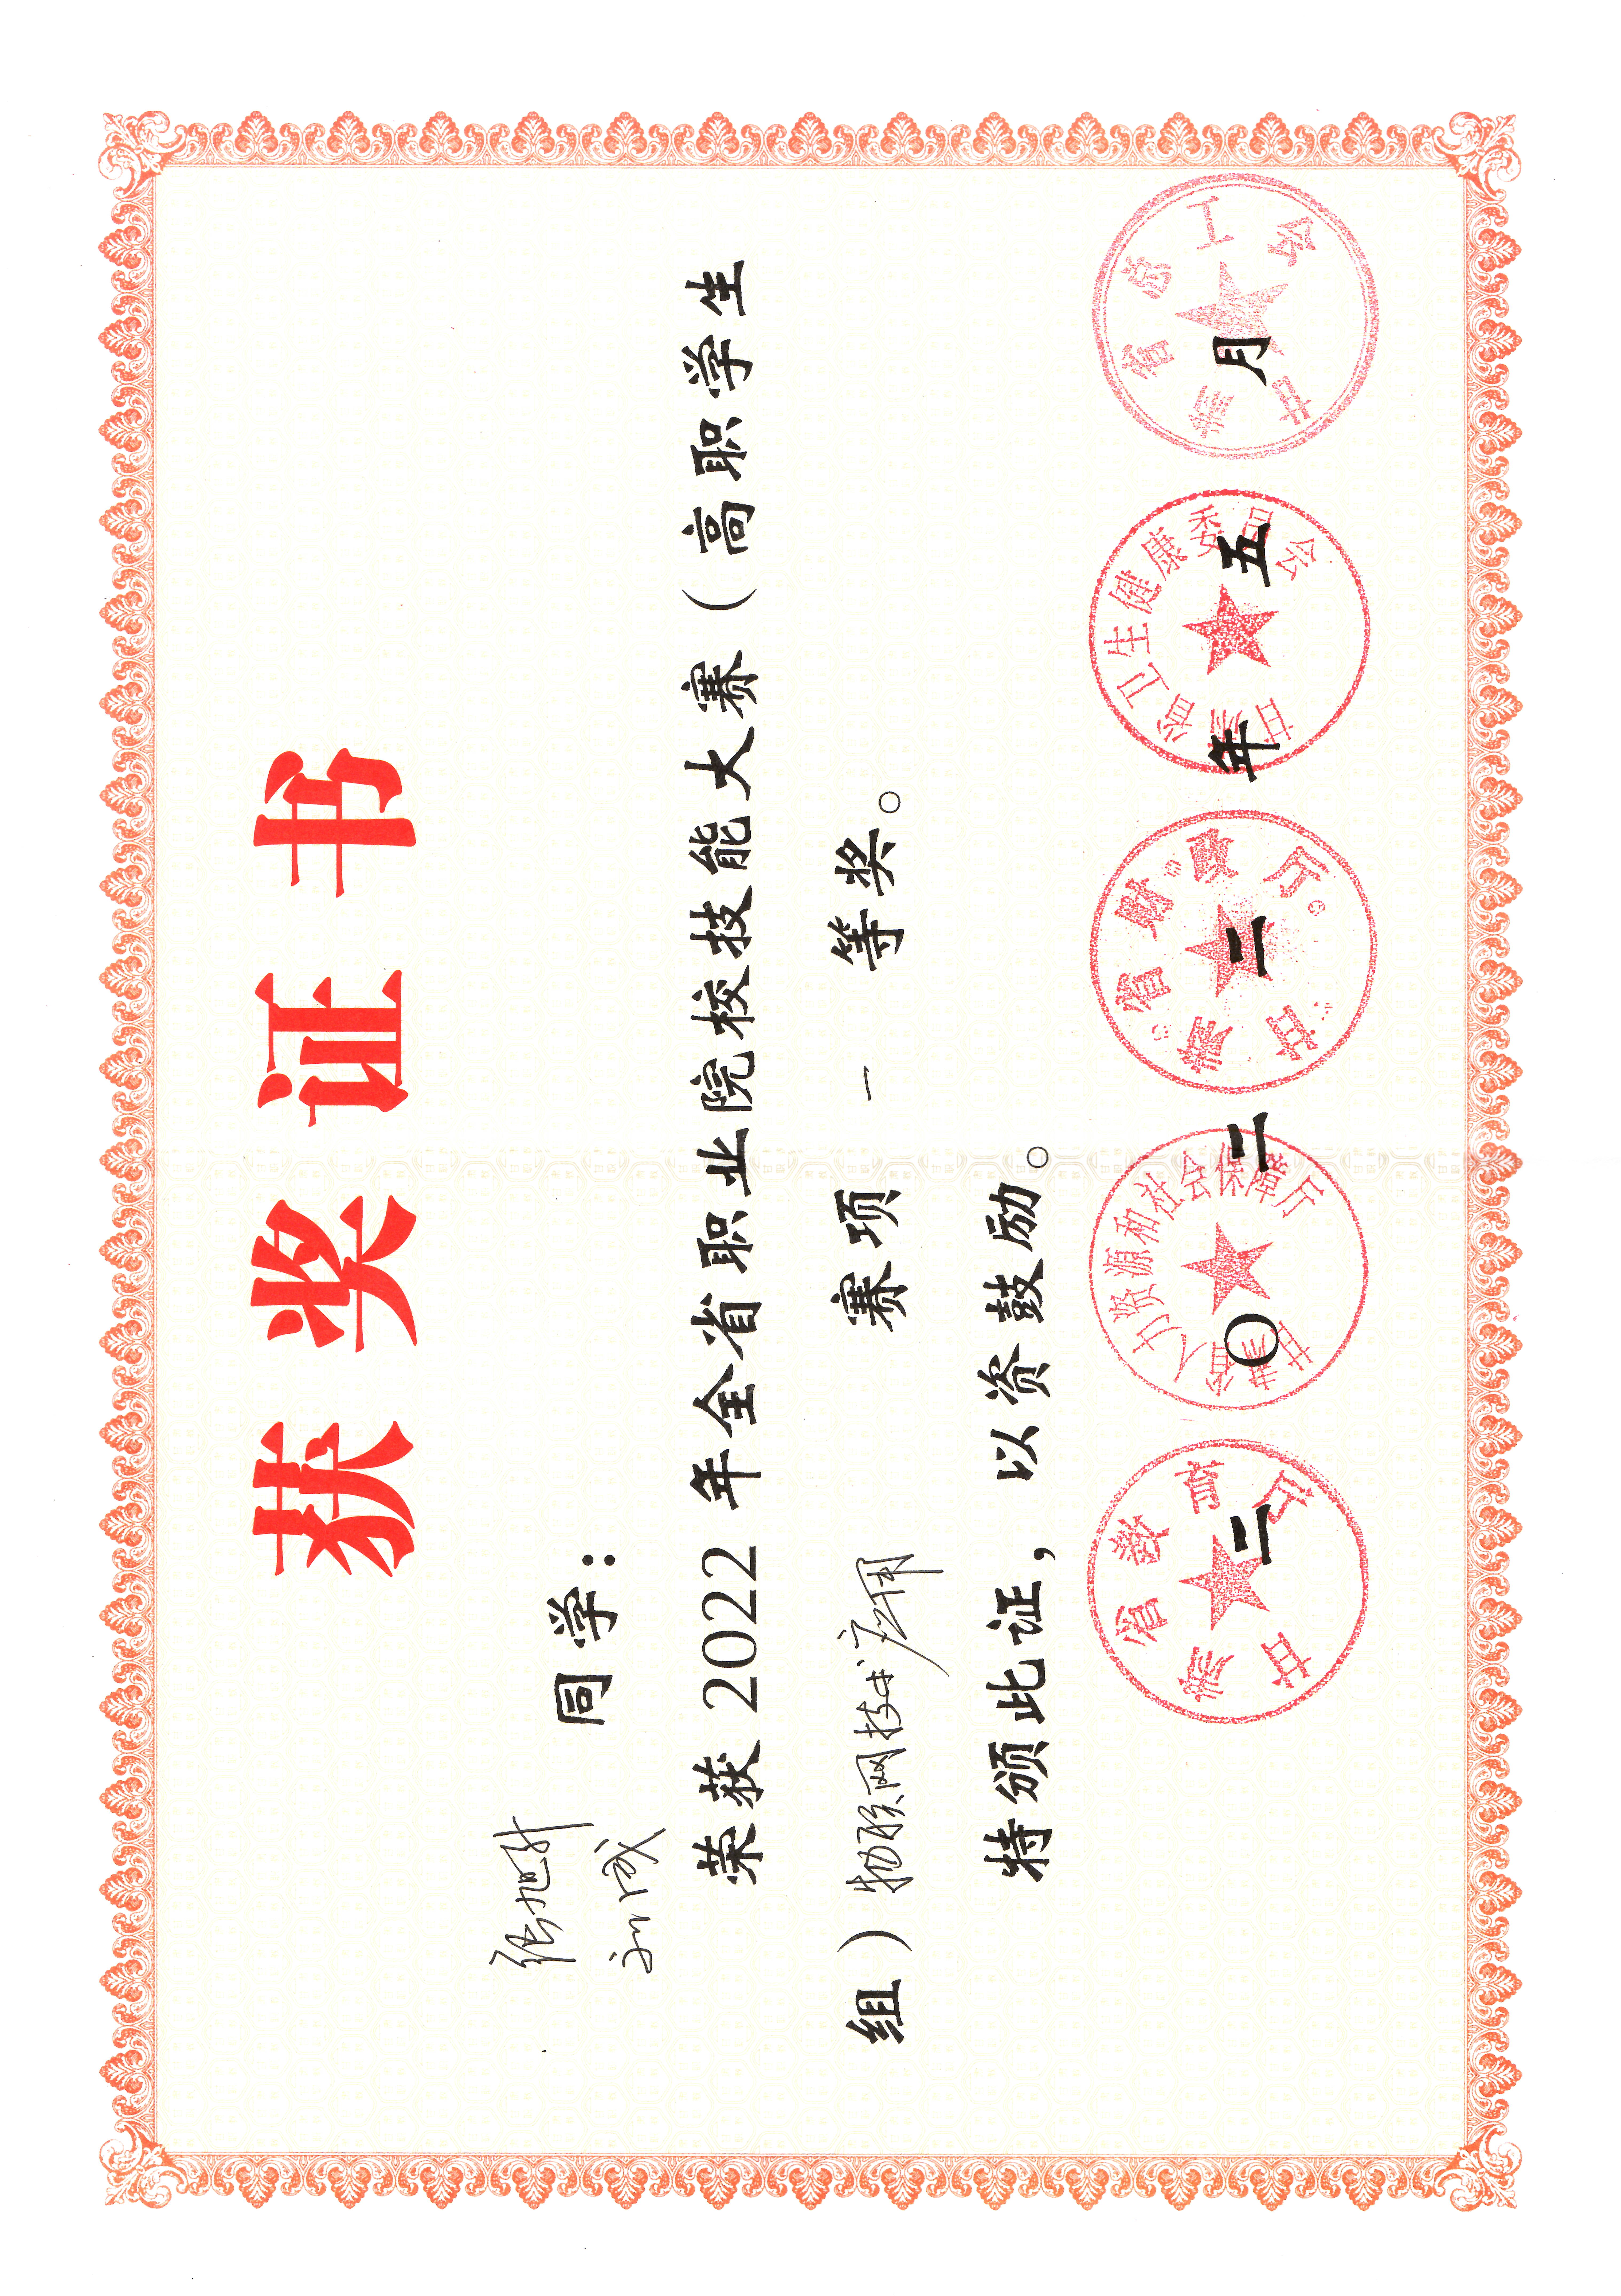 获奖证书
张旭升
同学：
荣获 2022 年全省职业院校技能大赛（高职学生
组）物联网技术应用 赛项 一 等奖。
特颁此证，以资鼓励。
甘肃省教育厅
甘肃省人力资源和社会保障厅
甘肃省财政厅
甘肃省卫生健康委员会
甘肃省总工会
二〇二二年五月